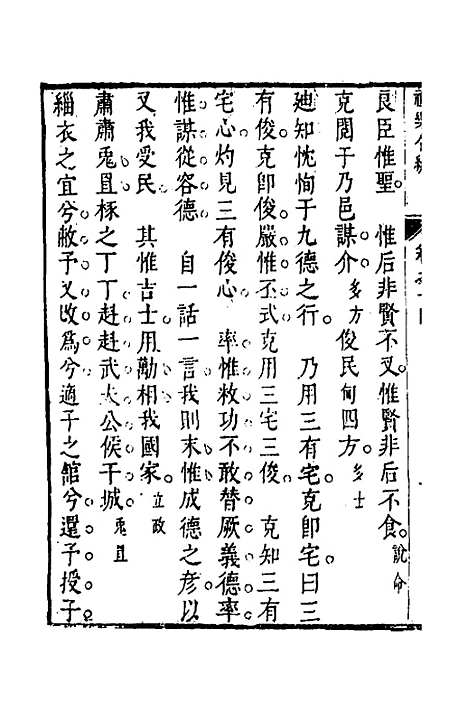 良臣惟聖。　惟后非賢不乂。惟賢非后不食。說命
克閱于乃邑謀介多方俊民甸四方。多士
廸知忱恂于九德之行。　乃用三有宅。克卽宅曰三
有俊克卽俊。嚴惟丕式克用三宅三俊。　克知三有
宅心灼見三有俊心　率惟敉功不敢替厥義德率
惟謀從容德　自一話一言我則末惟成德之彥以
又我受民　其惟吉士用勱相我國家。立政
肅肅兎罝椓之丁丁赳赳武夫公侯干城。兎罝
緇衣之宜兮敝予又改爲兮適子之館兮還予授子